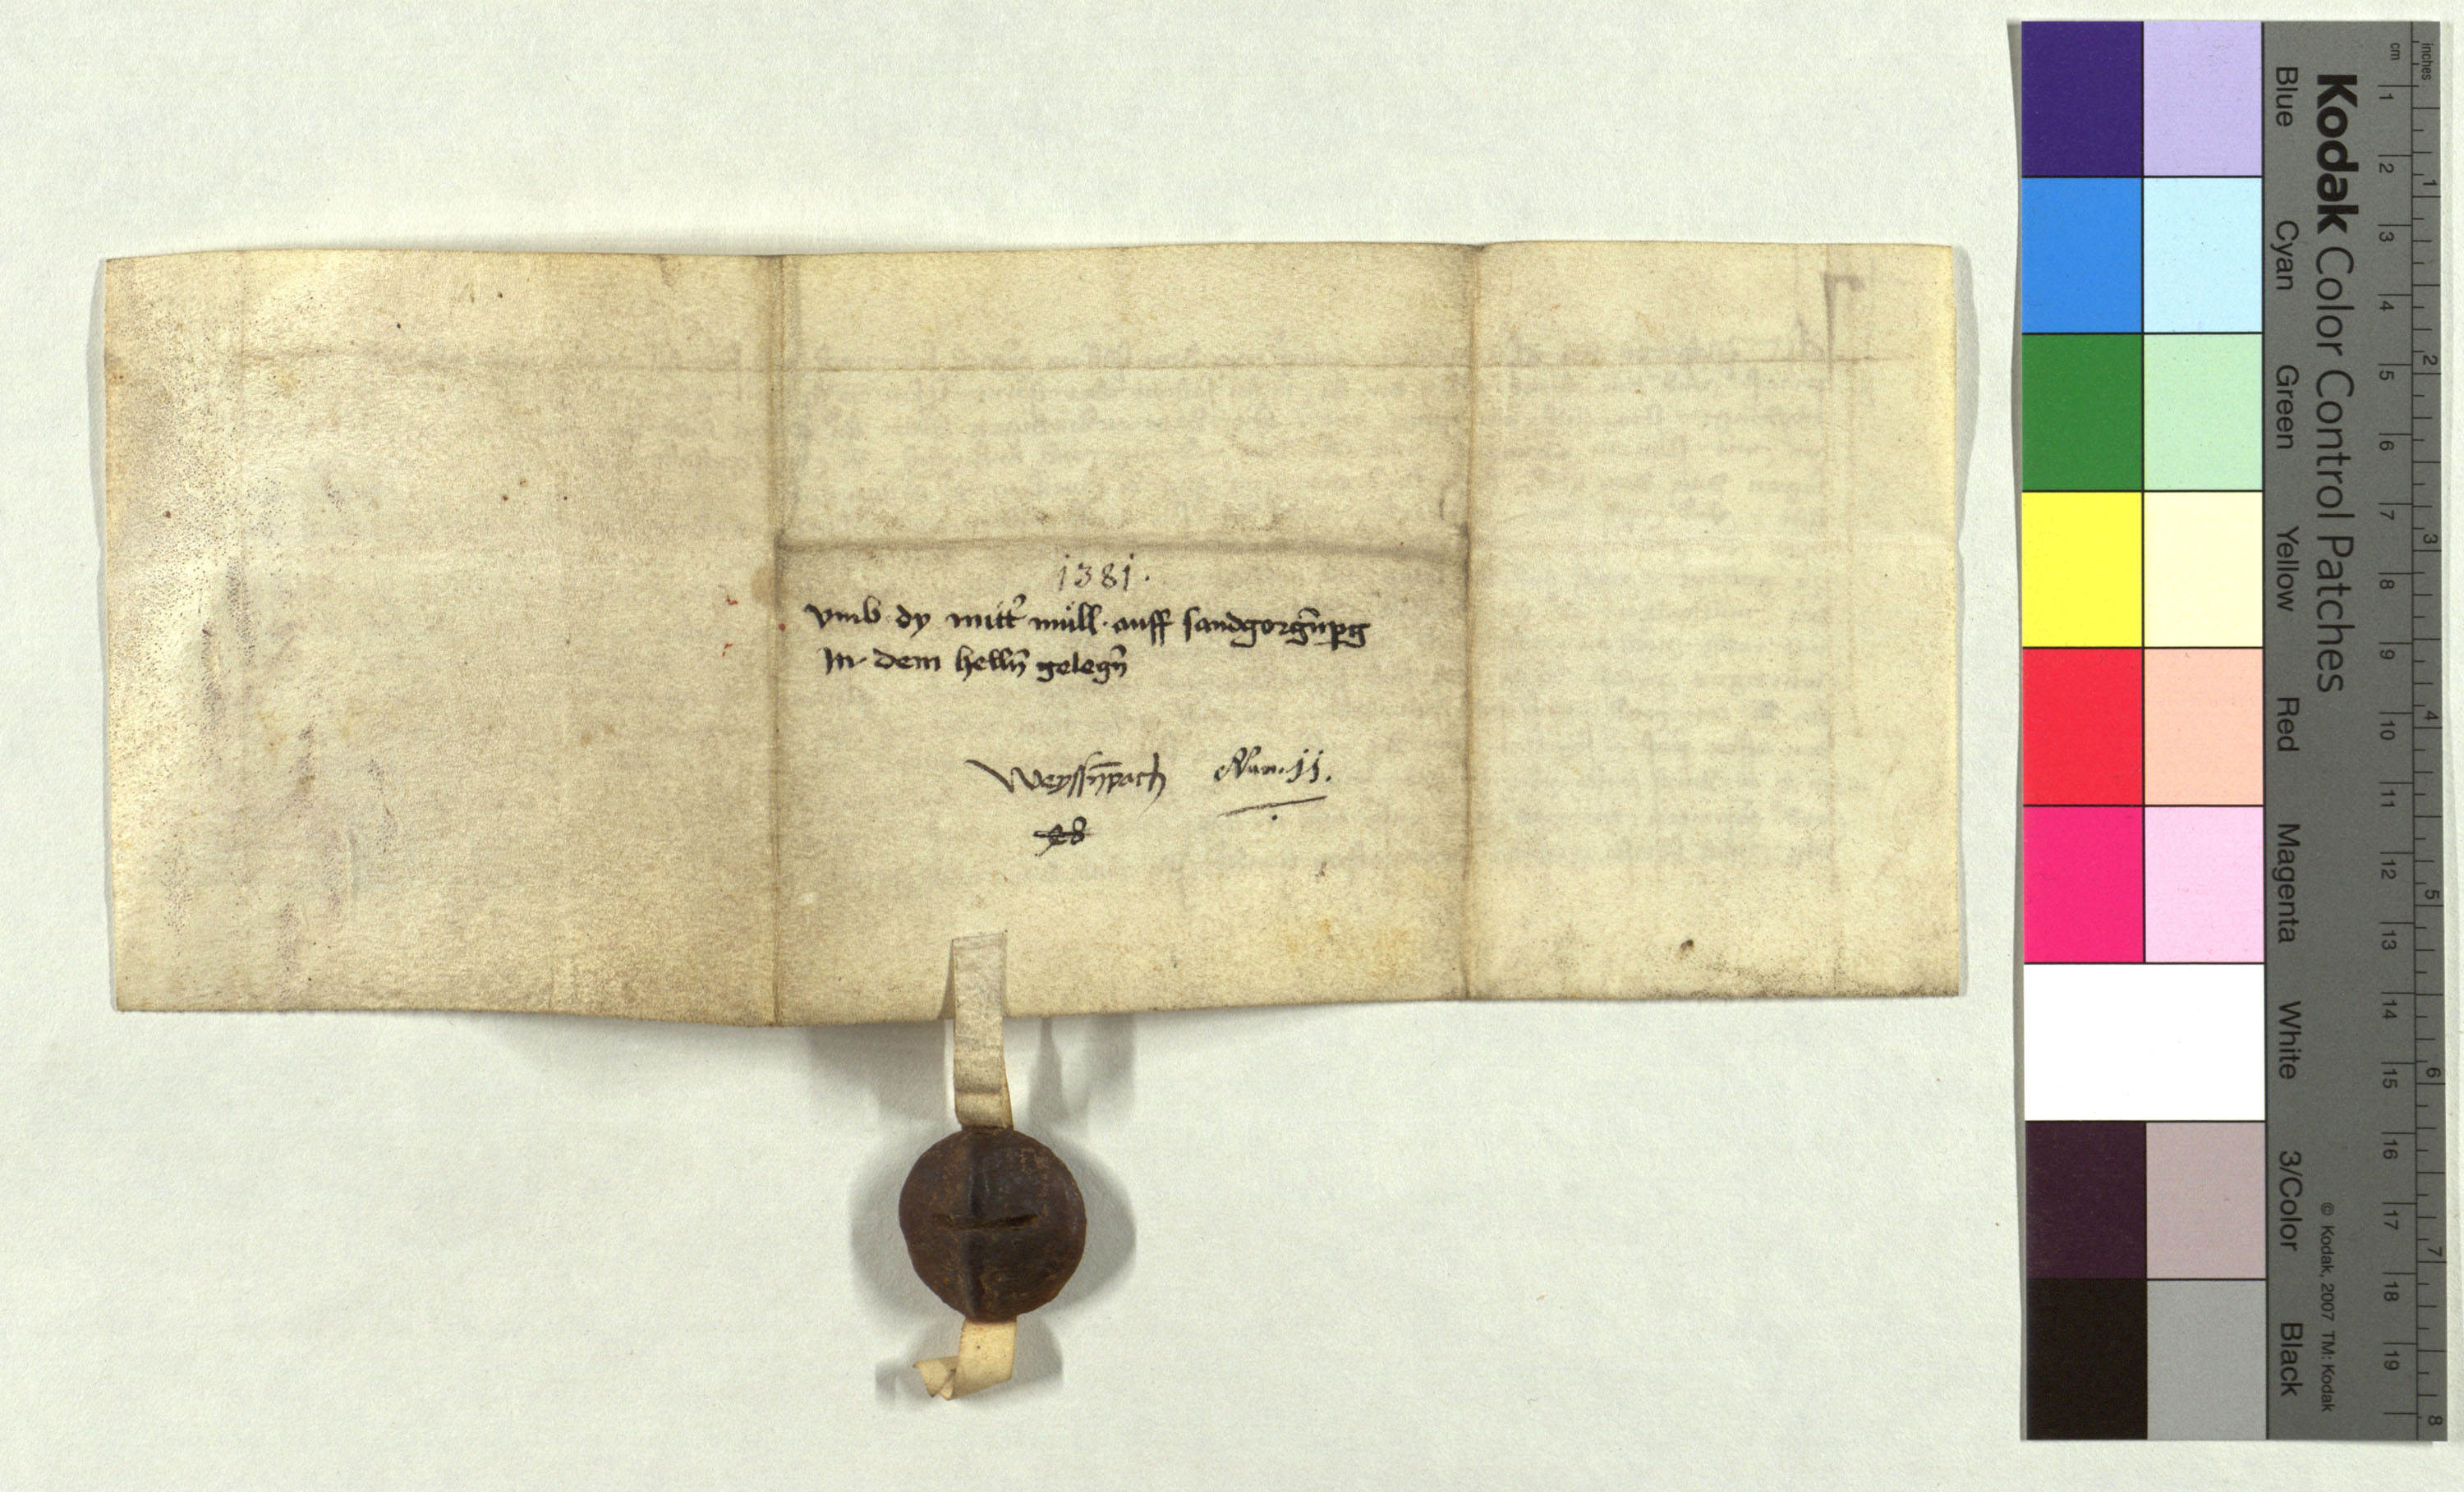 1381.
vmb dy mitt̉ müll auff sandgorgn̄pg
In dem helln̄ gelegn̄
Weyssn̄pach Num. 11.
28
Kodak Color Control Patches
Blue Cyan Green Yellow Red Magenta White 3/Color Black
© Kodak, 2007 TM: Kodak
cm 1 2 3 4 5 6 7 8 9 10 11 12 13 14 15 16 17 18 19
inches 1 2 3 4 5 6 7 8